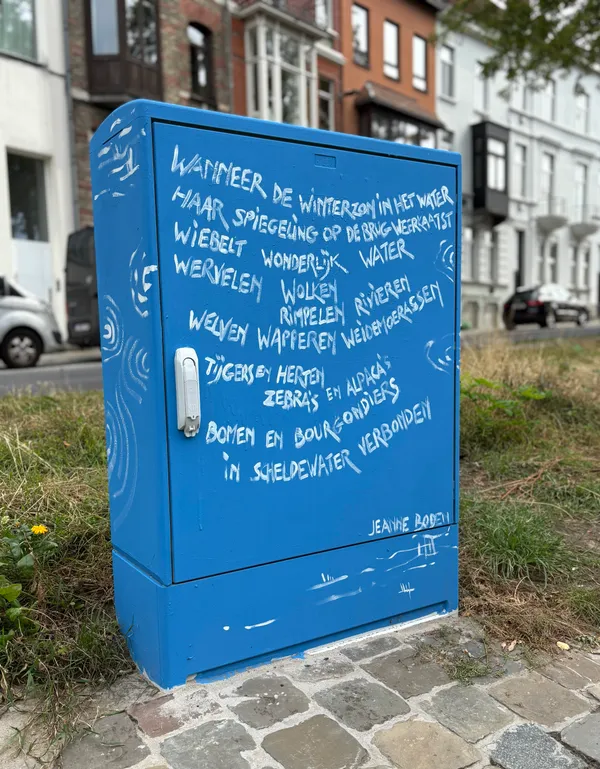 WANNEER DE WINTERZON IN HET WATER
HAAR SPIEGELING OP DE BRUG WEERKAATST
WIEBELT WONDERLIJK WATER
WERVELEN WOLKEN
RIMPELEN RIVIEREN
WELVEN WAPPEREN WEIDEMOERASSEN
TIJGERS EN HERTEN
ZEBRA'S EN ALPACA'S
BOMEN EN BOURGONDIËRS
IN SCHELDEWATER VERBONDEN
JEANNE BODEN